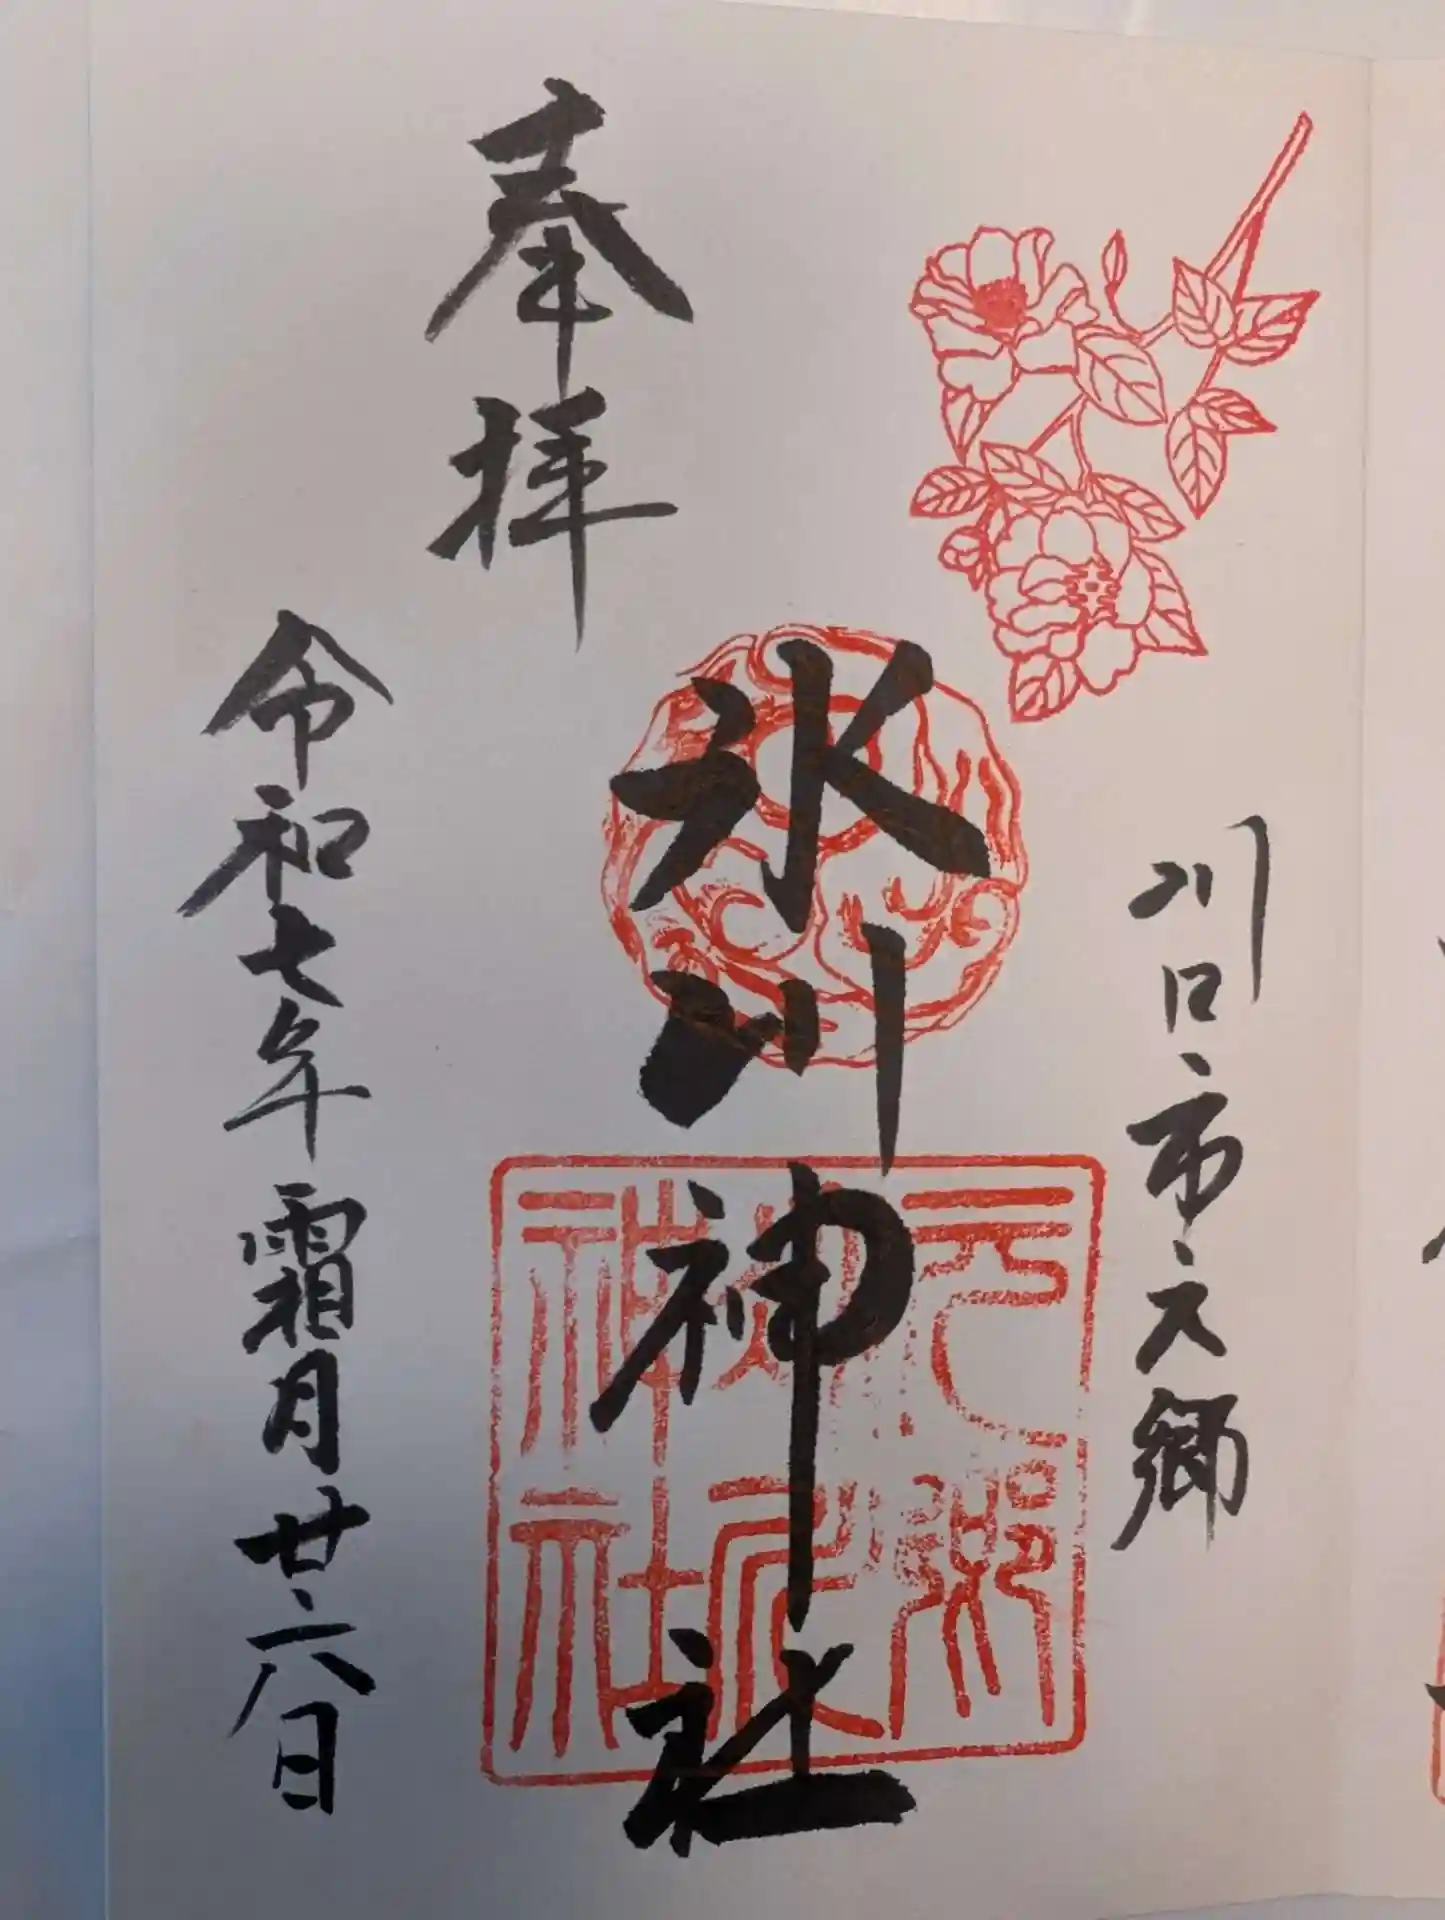 川口市元郷
氷川神社
元郷
神社
奉拝
令和七年霜月廿六日